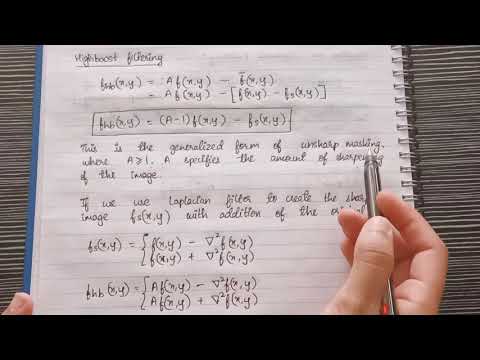 Highboost filtering
fhb(x,y) = Af(x,y) - f̄(x,y)
= Af(x,y) - [f(x,y) - fs(x,y)]
fhb(x,y) = (A-1)f(x,y) - fs(x,y)
This is the generalized form of unsharp masking,
where A≥1. A specifies the amount of sharpening
of the image.
If we use Laplacian filter to create the
image fs(x,y) with addition of the
fs(x,y) = { f(x,y) - ∇²f(x,y)
f(x,y) + ∇²f(x,y)
fhb(x,y) = { Af(x,y) - ∇²f(x,y)
Af(x,y) + ∇²f(x,y)